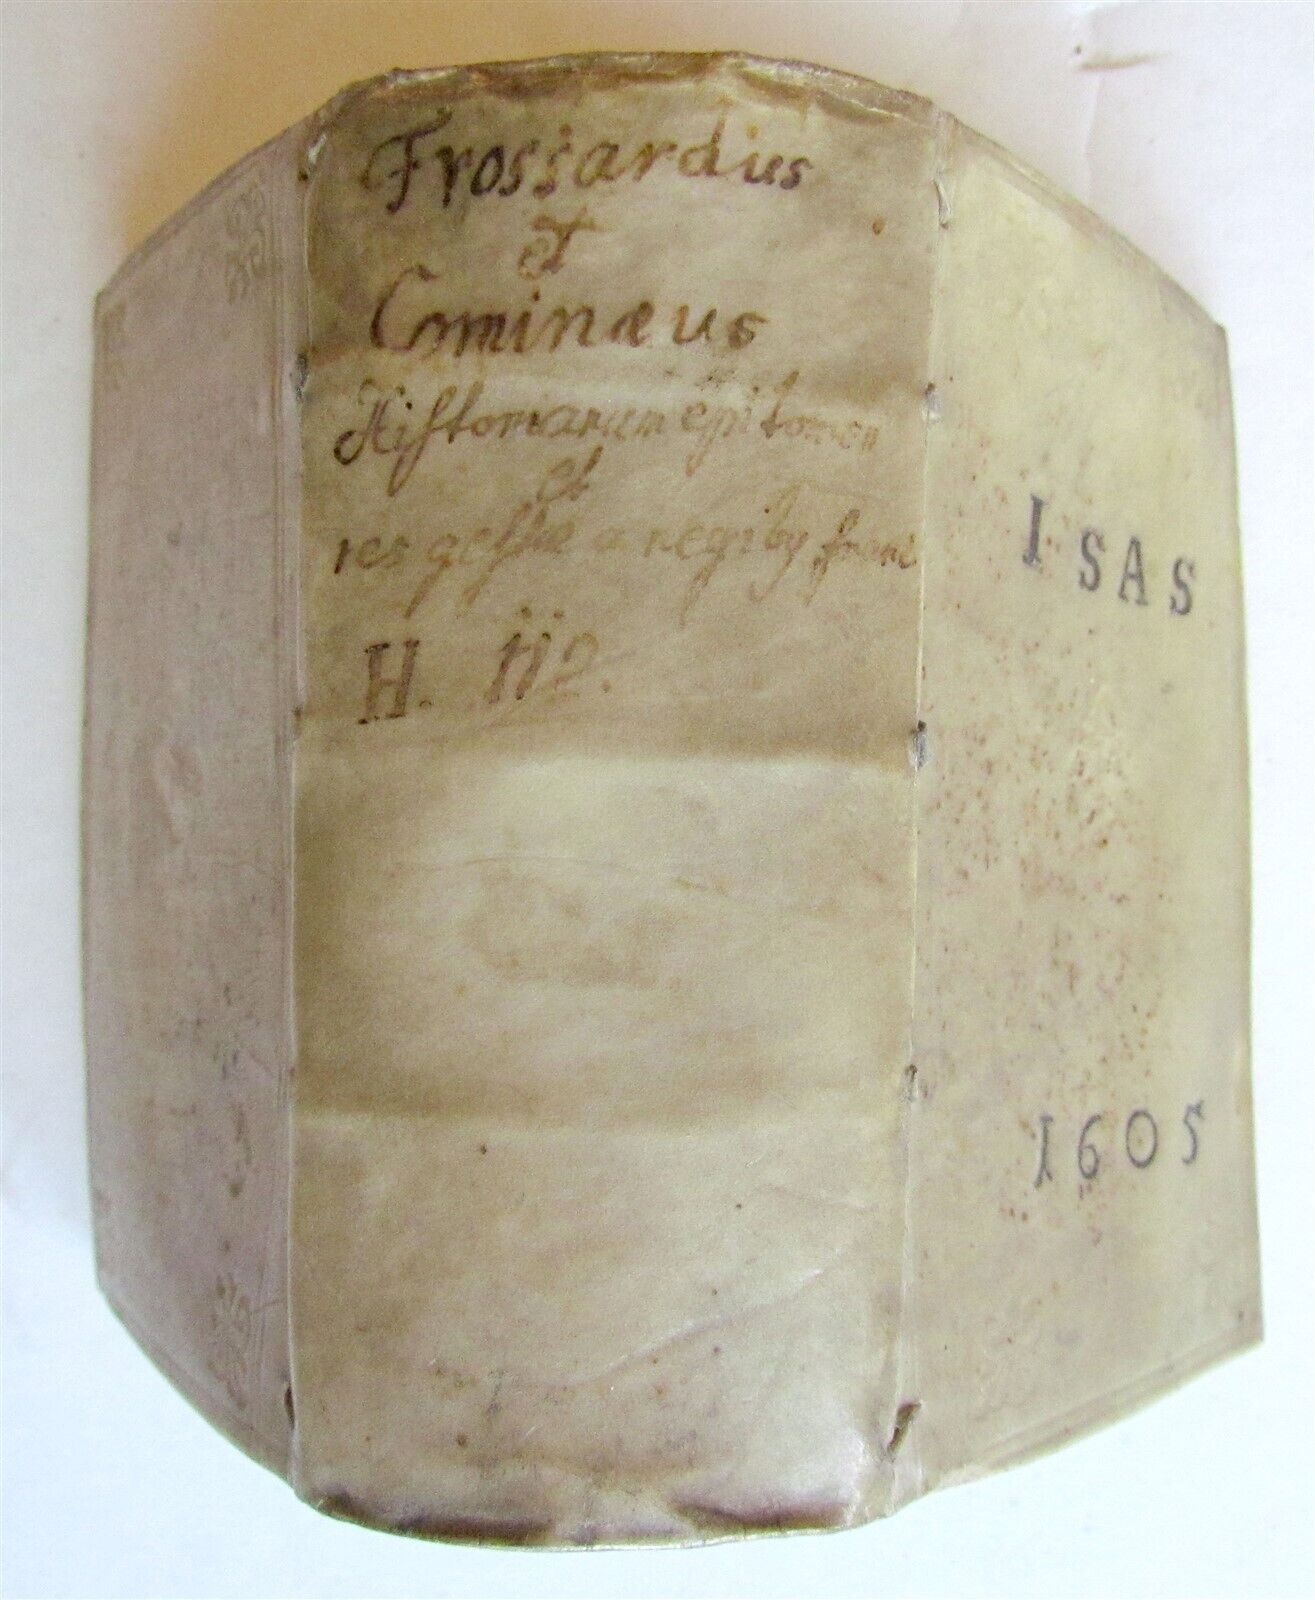 Frossardius
et
Cominæus
Historiarum epitomen
et
res gestæ a regiby franc
H. 112.
I SAS
1605